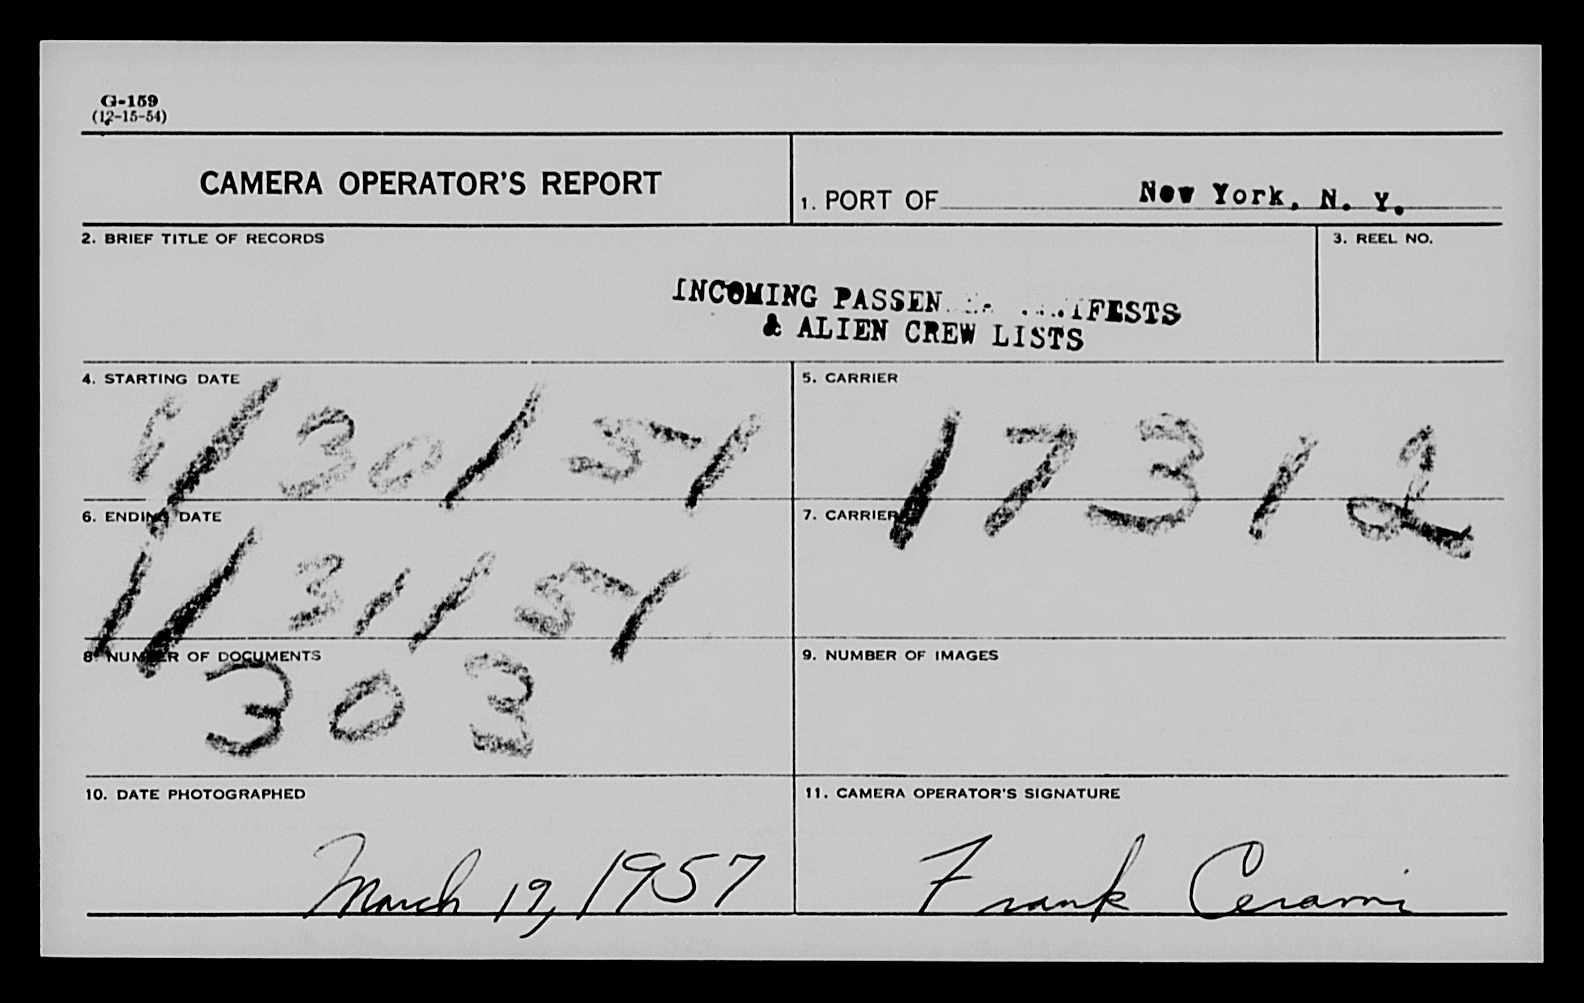 G-159
(12-15-54)
CAMERA OPERATOR'S REPORT
1. PORT OF New York, N. Y.
2. BRIEF TITLE OF RECORDS
3. REEL NO.
INCOMING PASSEN IFESTS
& ALIEN CREW LISTS
4. STARTING DATE
5. CARRIER
1/30/51
17312
6. ENDING DATE
7. CARRIER
1/31/51
8. NUMBER OF DOCUMENTS
9. NUMBER OF IMAGES
303
10. DATE PHOTOGRAPHED
11. CAMERA OPERATOR'S SIGNATURE
March 19, 1957
Frank Cerami